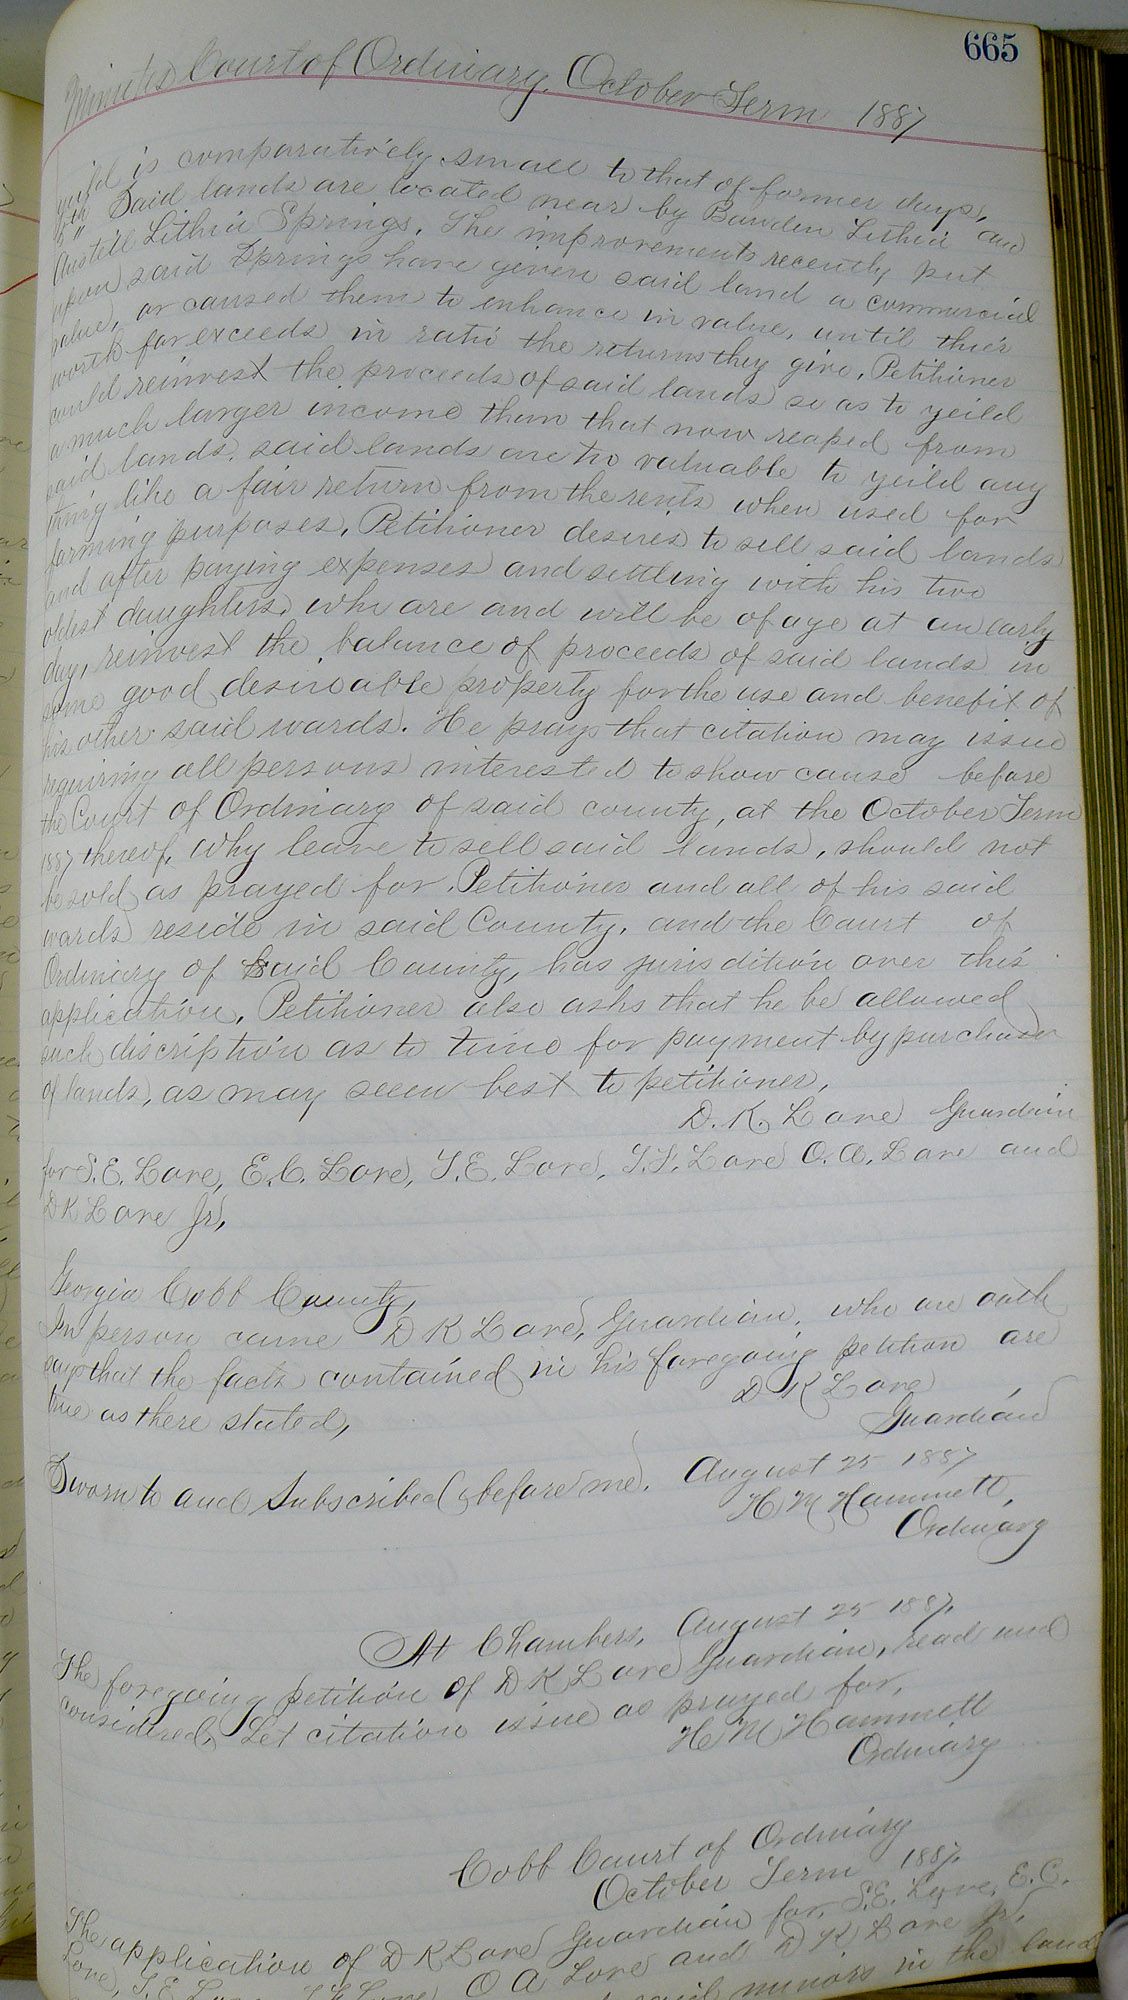 665
Minutes Court of Ordinary, October Term 1887
yeild is comparatively small to that of former days,
5th " Said lands are located near by Bowden Lithia and
Austell Lithia Springs. The improvements recently put
upon said Springs have given said land a commercial
value, or caused them to enhance in value, until their
worth far exceeds in ratio the returns they give, Petitioner
could reinvest the proceeds of said lands so as to yeild
a much larger income than that now reaped from
said lands. said lands are to valuable to yeild any
thing like a fair return from the rents when used for
farming purposes. Petitioner desires to sell said lands
and after paying expenses and settling with his two
oldest daughters, who are and will be of age at an early
day, reinvest the balance of proceeds of said lands in
some good desireable property for the use and benefit of
his other said wards. He prays that citation may issue
requiring all persons interested to show cause before
the Court of Ordinary of said county, at the October Term
1887 thereof, why leave to sell said lands, should not
be sold as prayed for. Petitioner and all of his said
wards reside in said County, and the Court of
Ordinary of Said County, has jurisdition over this
application, Petitioner also asks that he be allowed
such discription as to time for payment by purchaser
of lands, as may seem best to petitioner,
D. K. Love Guardian
for S. E. Love, E. C. Love, T. E. Love, T. F. Love O. A. Love and
D K Love Jr,
Georgia Cobb County,
In person came D K Love, Guardian, who on oath
says that the facts contained in his foregoing petition are
true as there stated,
D K Love
Guardian
Sworn to and Subscribed before me. August 25 1887
H M Hammett,
Ordinary
At Chambers, August 25 1887.
The foregoing petition of D K Love Guardian, read and
considered, Let citation issue as prayed for,
H M Hammett
Ordinary
Cobb Court of Ordinary
October Term 1887.
The application of D K Love Guardian for, S. E. Love, E. C.
Love, T. E. Love, T F Love, O A Love and D K Love Jr,
said minors in the land